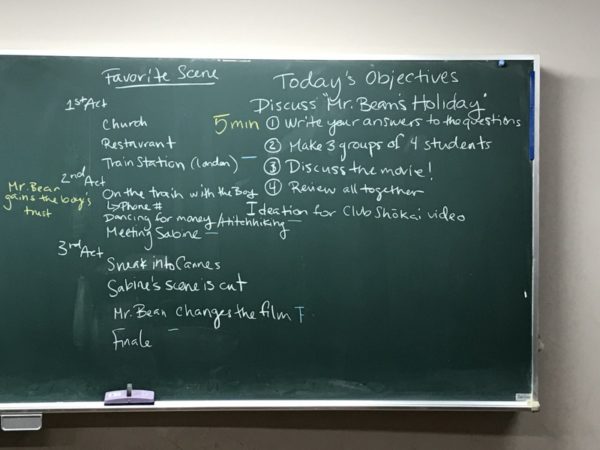 Favorite Scene
1st Act
Church
Restaurant
Train Station (London)
2nd Act
Mr. Bean
gains the boy's
trust
On the train with the Boy
↳Phone #
Dancing for money /Hitchhiking
Meeting Sabine
3rd Act
Sneak into Cannes
Sabine's scene is cut
Mr. Bean changes the film T
Finale
Today's Objectives
Discuss "Mr. Bean's Holiday"
5 min ① Write your answers to the questions
② Make 3 groups of 4 students
③ Discuss the movie!
④ Review all together
Ideation for Club Shōkai video